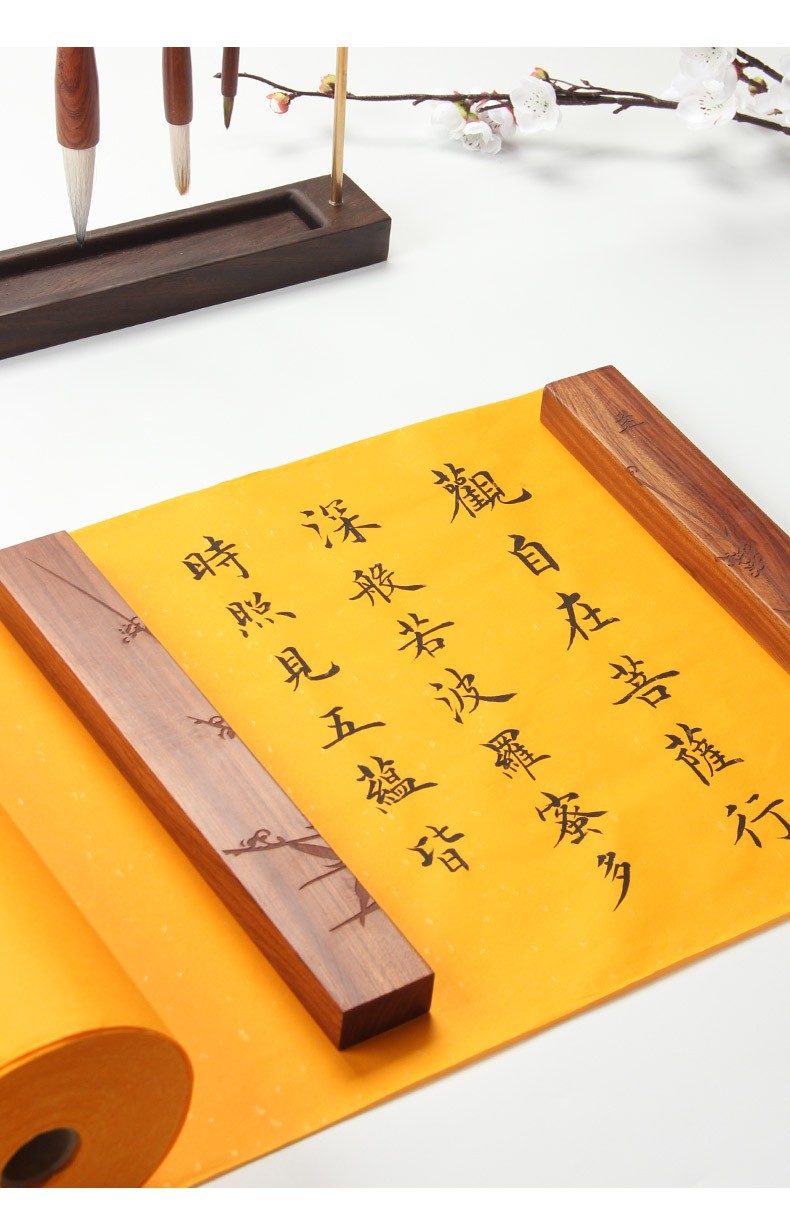 觀自在菩薩行
深般若波羅蜜多
時照見五蘊皆